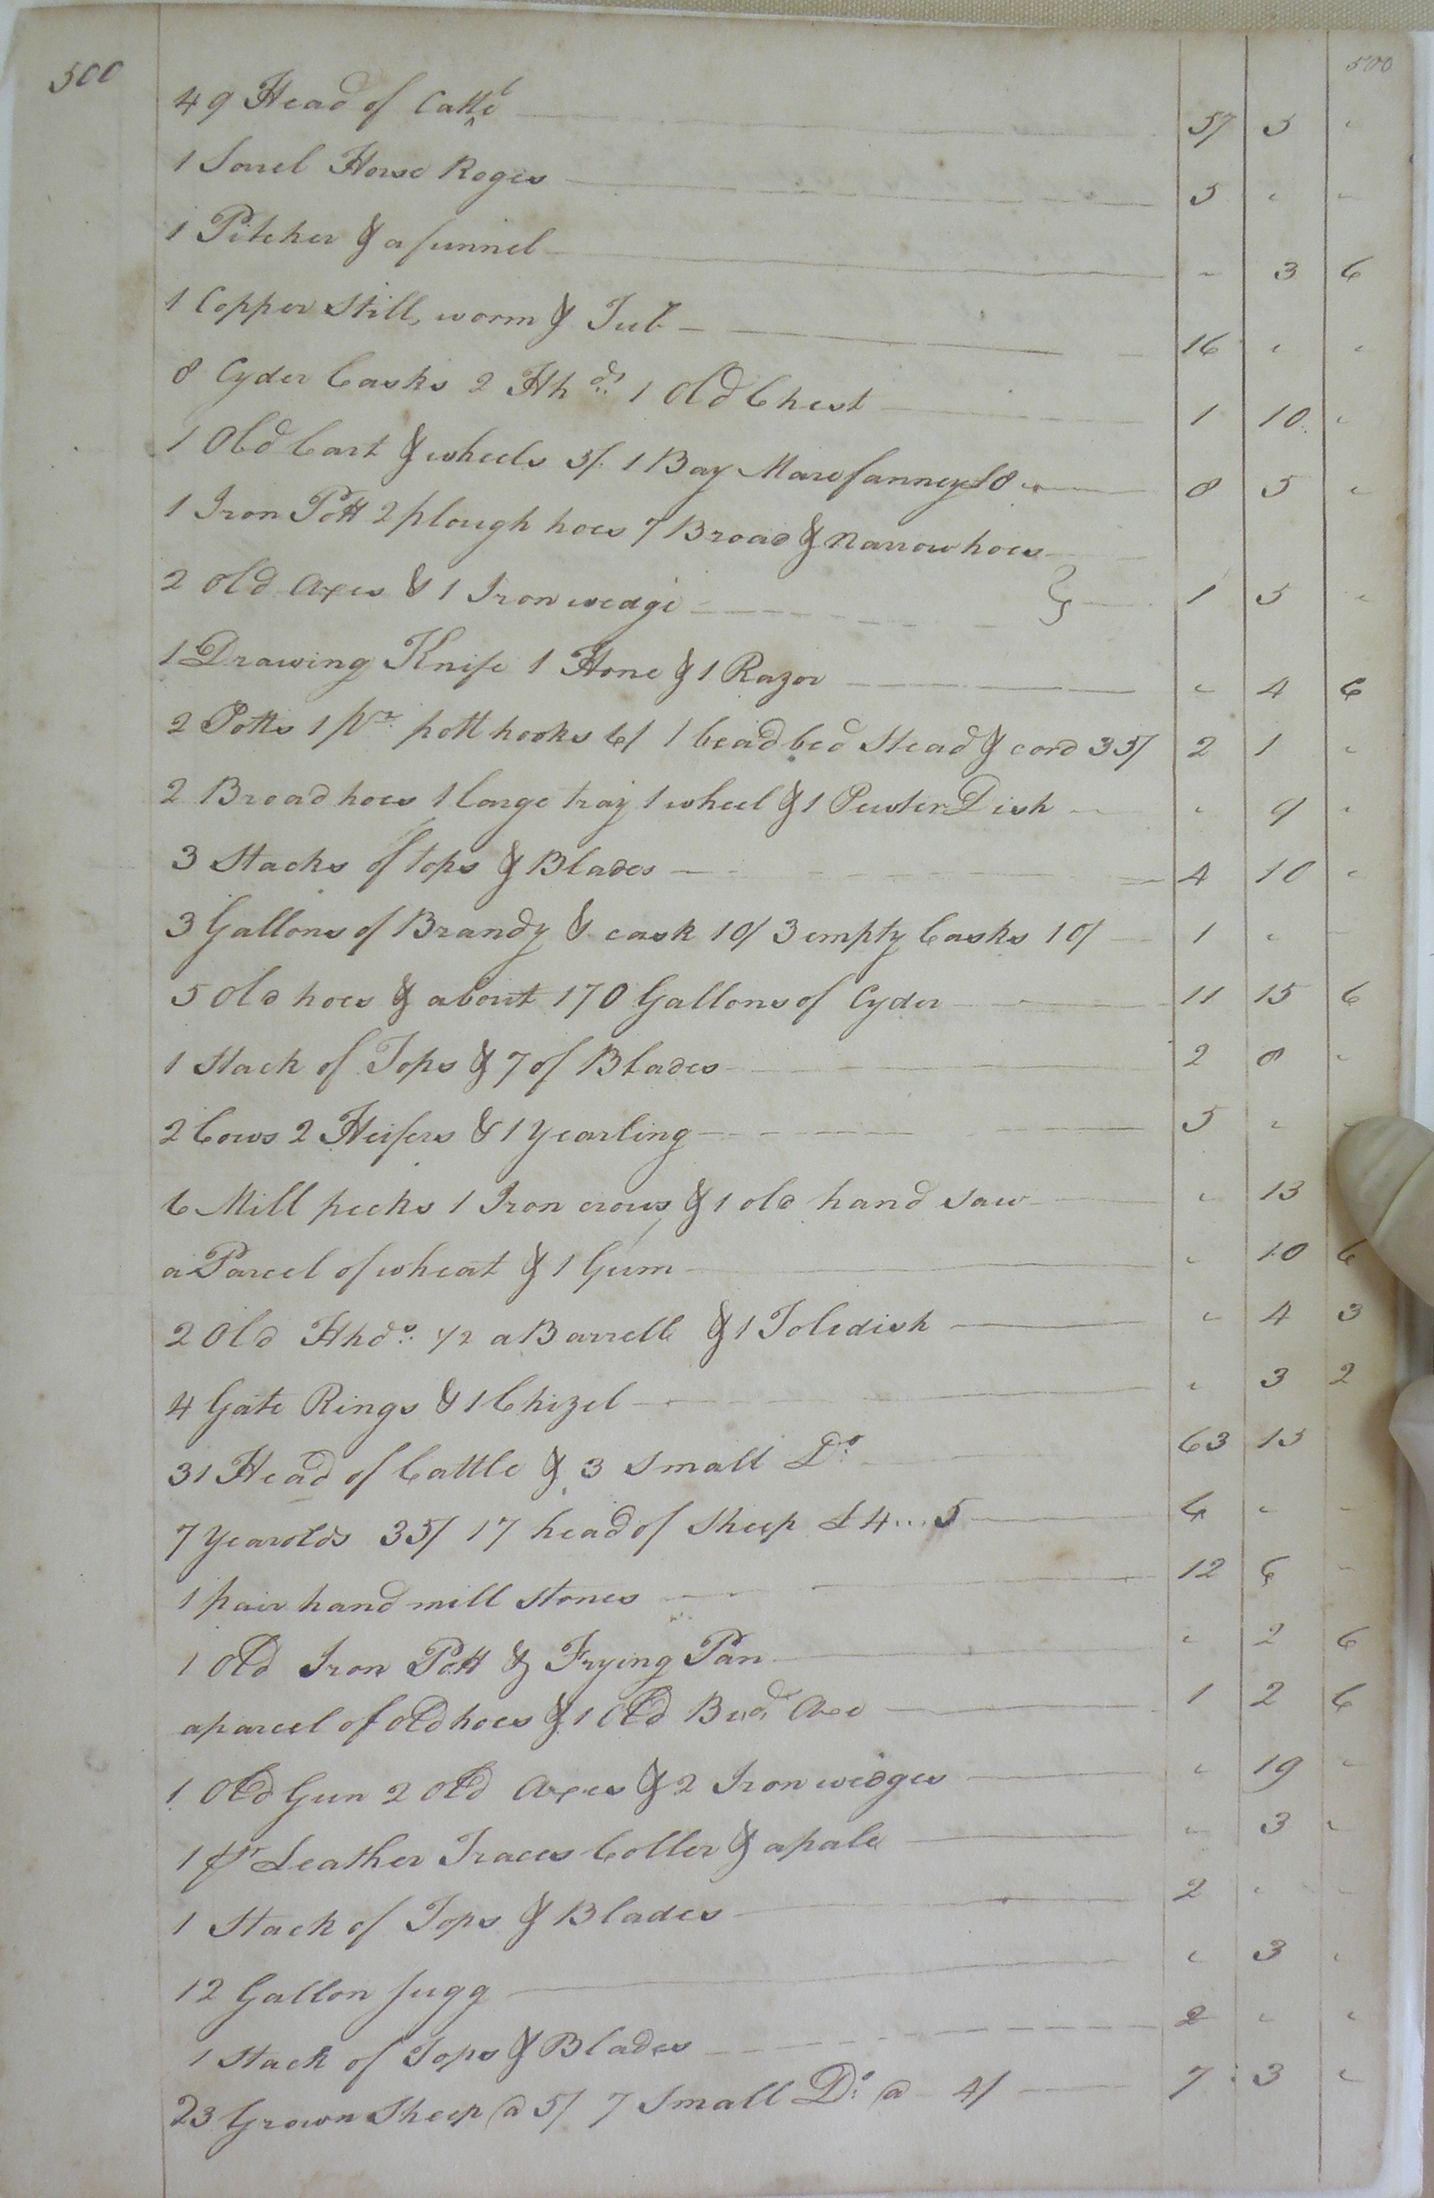 500 500
49 Head of Cattle 57 5 "
1 Sorrel Horse Roges 5 " "
1 Pitcher & a funnel " 3 6
1 Copper Still, worm & Tub 16 " "
8 Cyder Casks 2 Hhds 1 Old Chest 1 10 "
1 Old Cart & wheels 5/ 1 Bay Mare fanney £8 " 8 5 "
1 Iron Pott 2 plough hoes 7 Broad & Narrow hoes
2 old Axes & 1 Iron wedge } 1 5 "
1 Drawing Knife 1 Hone & 1 Razor " 4 6
2 Potts 1 pr. pott hooks 6/ 1 bead bed Stead & cord 35/ 2 1 "
2 Broad hoes 1 large tray 1 wheel & 1 Pewter Dish " 9 "
3 Stacks of tops & Blades 4 10 "
3 Gallons of Brandy & cask 10/ 3 empty Casks 10/ 1 " "
5 Old hoes & about 170 Gallons of Cyder 11 15 6
1 Stack of Tops & 7 of Blades 2 8 "
2 Cows 2 Heifers & 1 yearling 5 " "
6 Mill pecks 1 Iron crows & 1 old hand saw " 13
a Parcel of wheat & 1 Gum " 10 6
2 Old Hhds. 1/2 a Barrell & 1 Toledish " 4 3
4 Gate Rings & 1 Chizel " 3 2
31 Head of Cattle & 3 Small Do. 63 15
7 yearolds 35/ 17 head of Sheep £4...5 6 " "
1 pair hand mill stones 12 6 "
1 Old Iron Pott & Frying Pan " 2 6
a parcel of old hoes & 1 Old Axe 1 2 6
1 Old Gun 2 Old Axes & 2 Iron widges " 19 "
1 pr Leather Traces Coller & a pale " 3 "
1 Stack of Tops & Blades 2 " "
12 Gallon Jugg " 3 "
1 Stack of Tops & Blades 2 " "
23 Grown Sheep @ 5/ 7 Small Do. @ 4/ 7 3 "